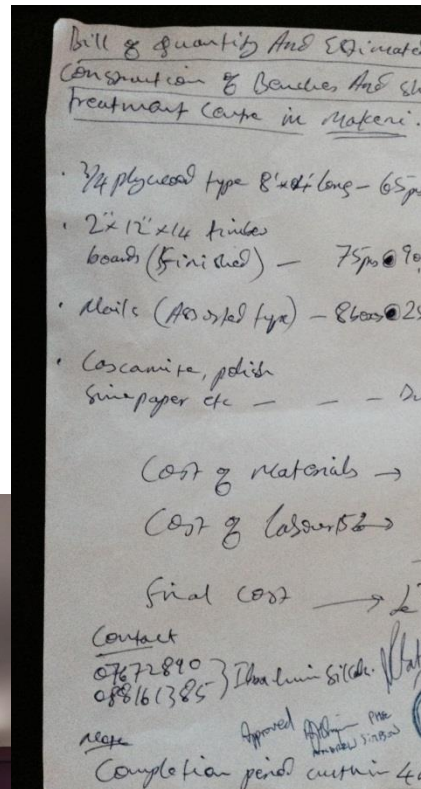 Bill of quantity And Estimate
Construction of Benches And
treatment centre in Makeni.
3/4 plywood type 8'x4' long - 65
2" x 12" x 14 timber
boards (Finished) - 75pcs @ 90
Nails (Assorted type) - 8boxes @ 25
Cascamite, polish
- - -
Cost of materials →
Cost of labour →
Final cost → £
Contact
07672890
088161385
Approved
Note
Completion period within 4